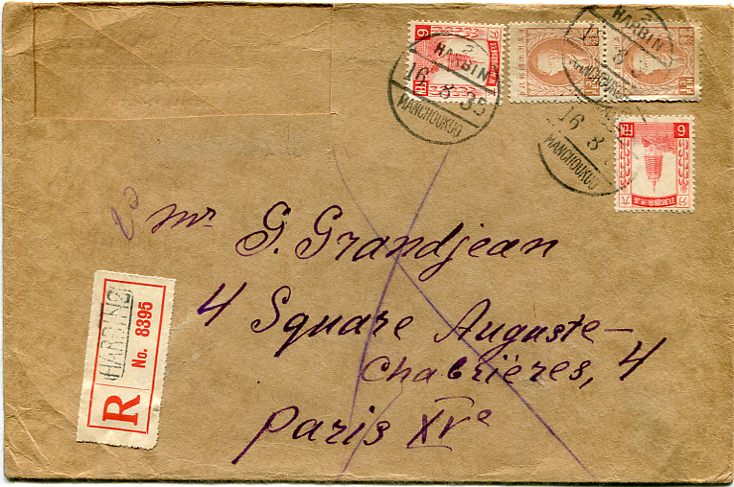 HARBIN 2
16 8 35
MANCHOUKUO
HARBIN 2
MANCHOUKUO
16 8
MANCHOUKUO
6
分
6
分
六
Mr G. Grandjean
4 Square Auguste-
Chabrières, 4
Paris XVe
R
HARBIN
No. 8395